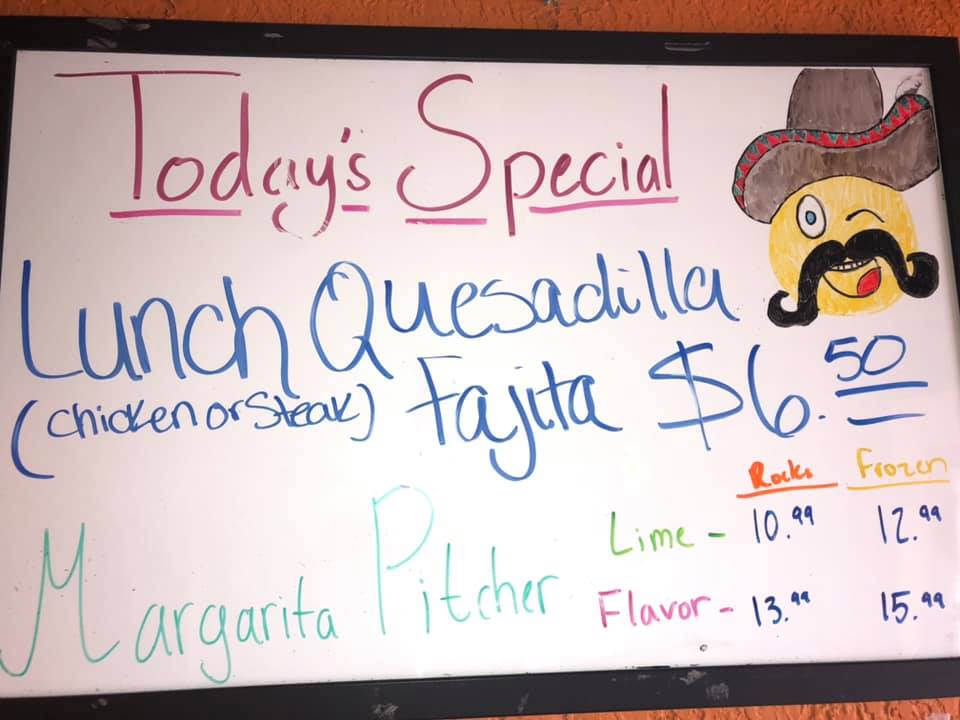 Today's Special
Lunch Quesadilla
(Chicken or Steak) Fajita $6.50
Rocks Frozen
Lime - 10.99 12.99
Margarita Pitcher
Flavor - 13.99 15.99